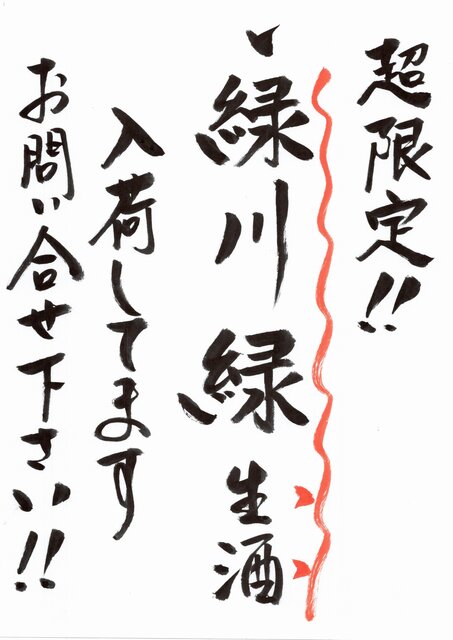 超限定!!
緑川 緑 生酒
入荷してます
お問い合せ下さい!!